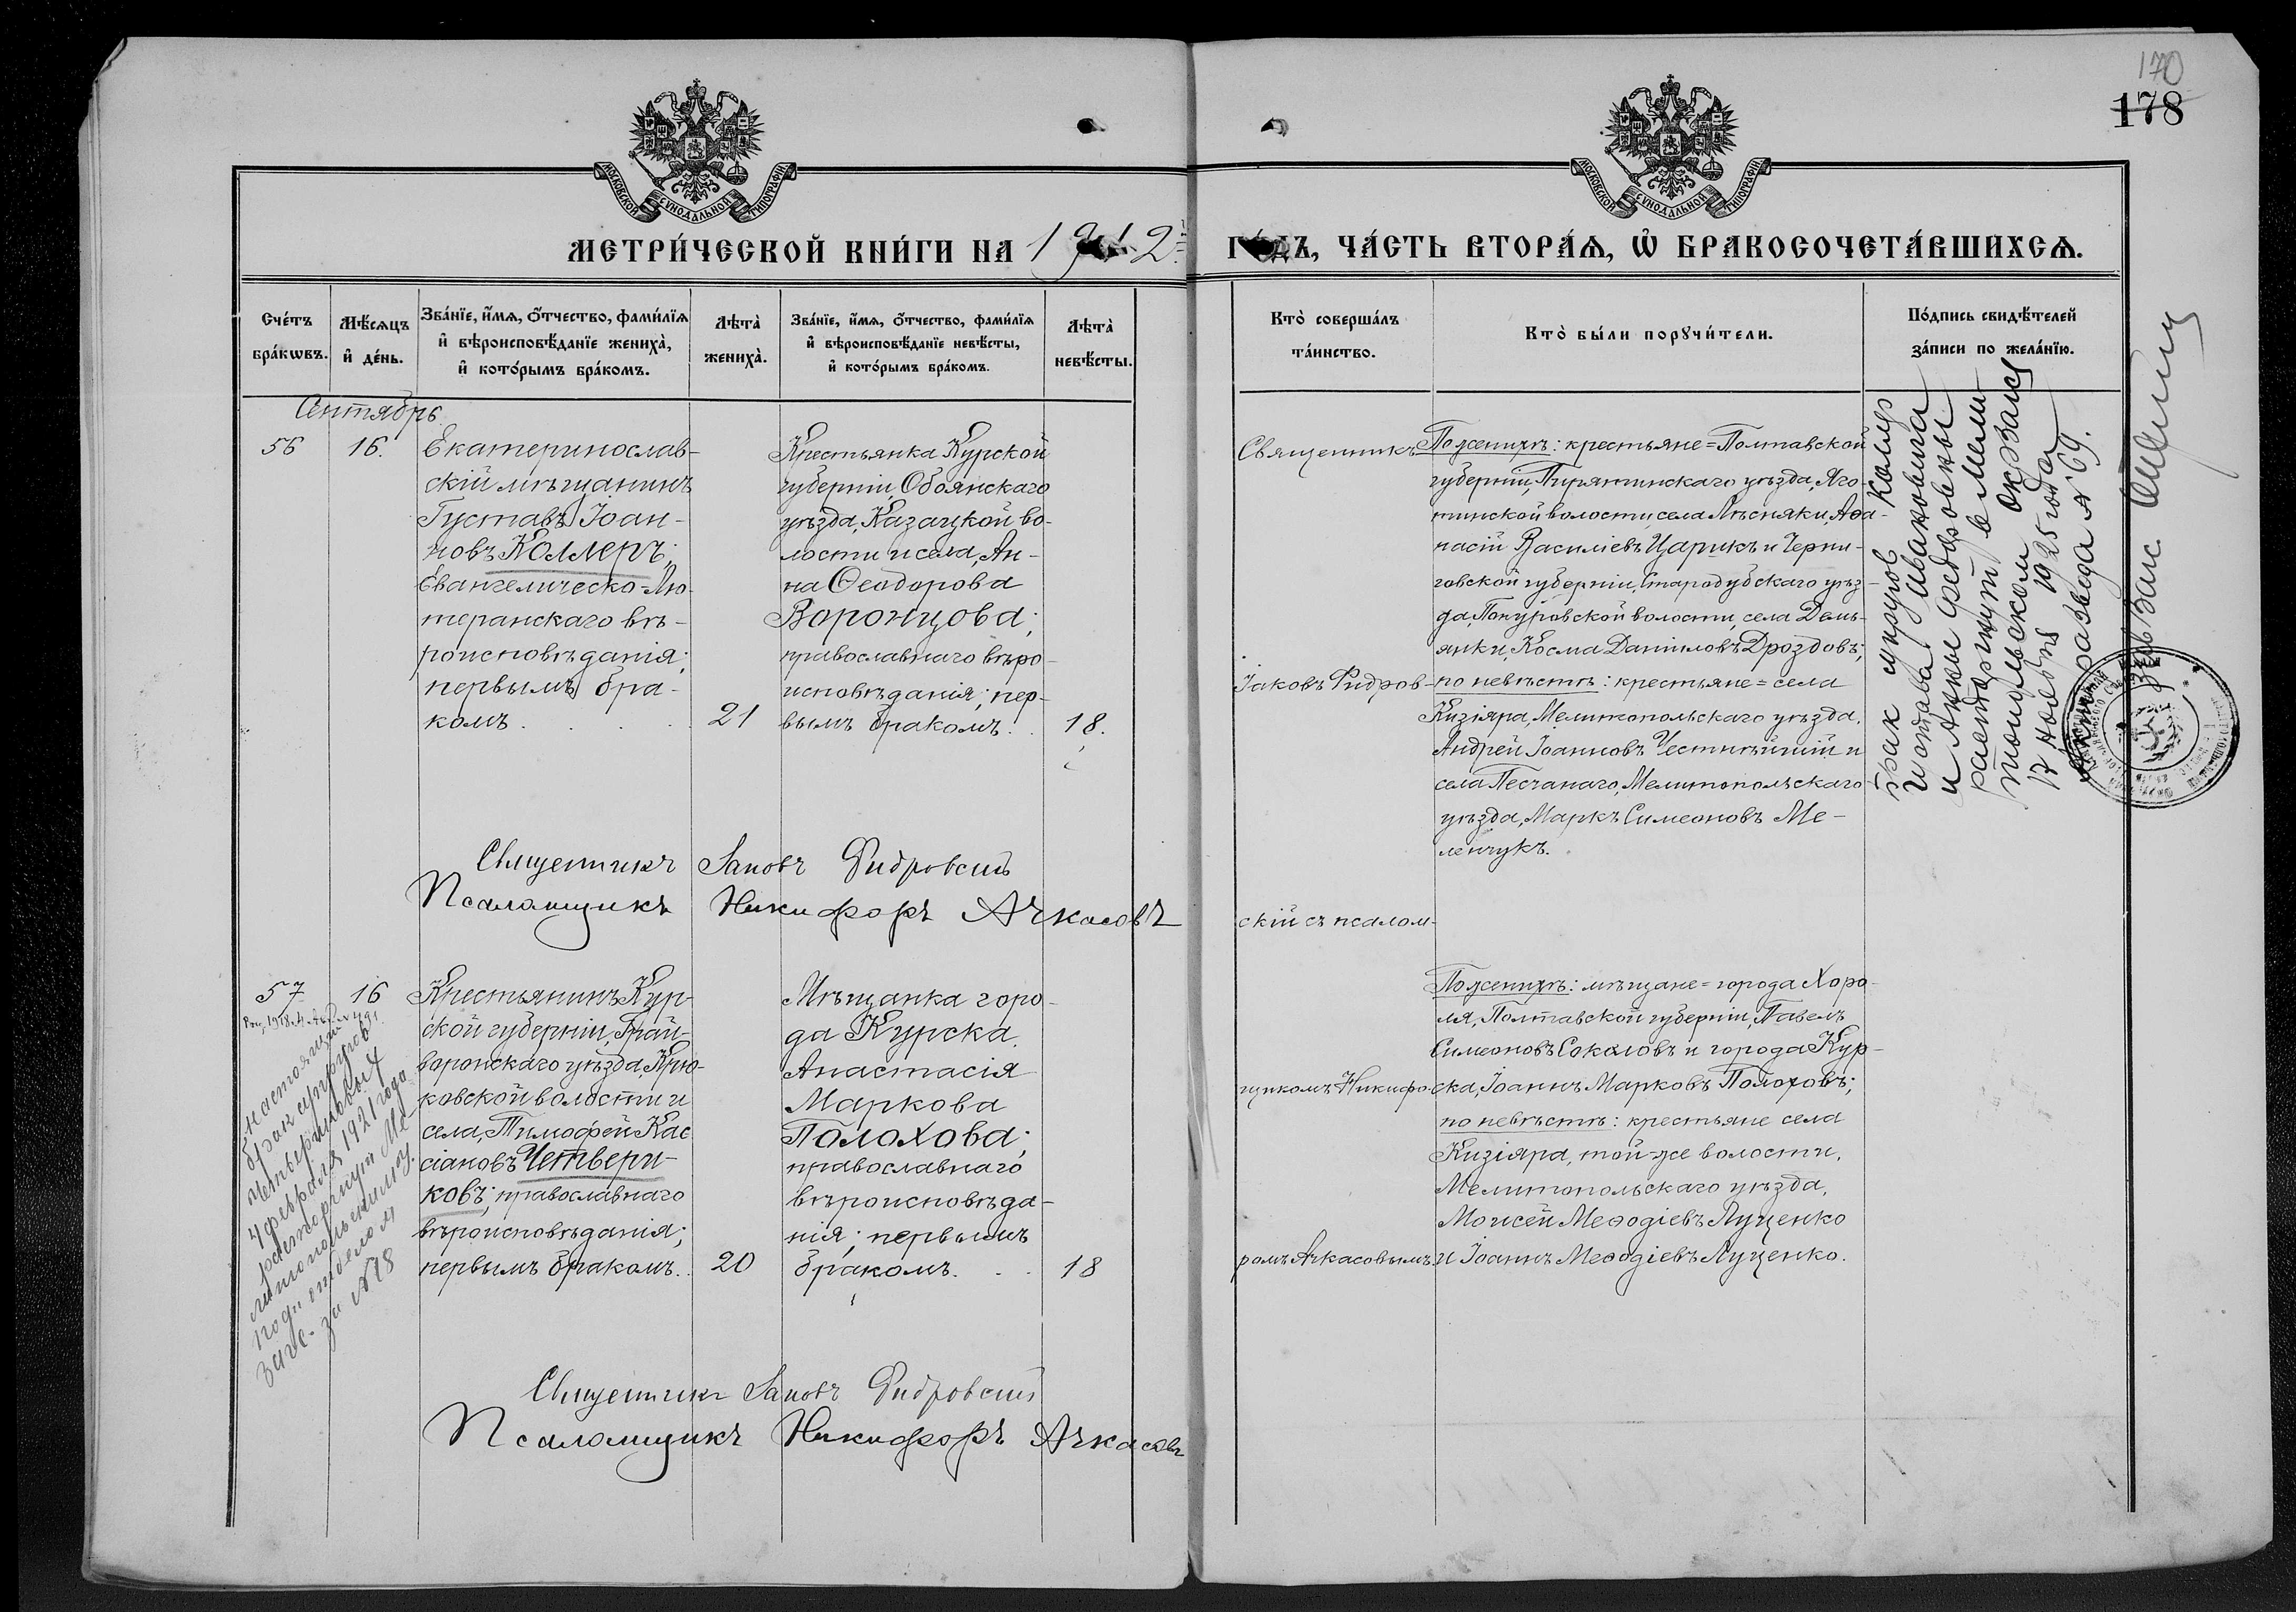 170
178
МОСКОВСКОЙ СѴНОДАЛЬНОЙ ТИПОГРАФІИ.
МОСКОВСКОЙ СѴНОДАЛЬНОЙ ТИПОГРАФІИ.
МЕТРИ́ЧЕСКОЙ КНИ́ГИ НА 1912
ГО́ДЪ, ЧА́СТЬ ВТОРА́Ѧ, Ѽ БРАКОСОЧЕТА́ВШИХСѦ.
Сче́тъ бра́кѡвъ.
Мѣ́сѧцъ и҆ де́нь.
Зва́нїе, и҆́мѧ, ѻ҆́тчество, фами́лїѧ и҆ вѣроисповѣ́данїе жениха̀, и҆ кото́рымъ бра́комъ.
Лѣта̀ жениха̀.
Зва́нїе, и҆́мѧ, ѻ҆́тчество, фами́лїѧ и҆ вѣроисповѣ́данїе невѣ́сты, и҆ кото́рымъ бра́комъ.
Лѣта̀ невѣ́сты.
Кто̀ соверша́лъ та́инство.
Кто̀ бы́ли порꙋчи́тели.
По́дпись свидѣ́телей за́писи по жела́нїю.
Сентябрь.
56
16.
Екатеринослав-
скій мѣщанинъ
Густавъ Іоан-
новъ Коллеръ;
Евангелическо-Лю-
теранскаго вѣ-
роисповѣданія;
первымъ бра-
комъ.
21
Крестьянка Курской
губерніи, Обоянскаго
уѣзда, Казацкой во-
лости и села, Ан-
на Ѳеодорова
Воронцова;
православнаго вѣро-
исповѣданія; пер-
вымъ бракомъ.
18.
Священникъ
Іаковъ Фидров-
скій съ псалом-
щикомъ Никифо-
ромъ Ачкасовымъ.
По женихѣ: крестьяне = Полтавской
губерніи, Пирятинскаго уѣзда, Яго-
тинской волости, села Лѣсняки, Аѳа-
насій Василіевъ Царикъ и Черни-
говской губерніи, Стародубскаго уѣз-
да, Понуровской волости, села Демь-
янки, Косма Даніиловъ Дроздовъ;
по невѣстѣ: крестьяне = села
Кизіяра, Мелитопольскаго уѣзда,
Андрей Іоанновъ Честнѣйшій и
села Песчанаго, Мелитопольскаго
уѣзда, Маркъ Симеоновъ Ме-
ленчукъ.
брак супругов Колер
Густава Ивановича
и Анны Федоровны
расторгнут в Мели-
топольском Окрзагсе
17 ноября 1925 года
Акт развода № 69.
Зав Загс
Священникъ Іаковъ Фидровскій
Псаломщикъ Никифоръ Ачкасовъ
57
16
настоящий
брак супругов
Четвериковых
4 февраля 1921 года
расторгнут Ме-
литопольским у.
под. отделом
загс. за № 18
Крестьянинъ Кур-
ской губерніи, Грай-
воронскаго уѣзда, Крю-
ковской волости и
села, Тимофей Кас-
сіановъ Четвери-
ковъ; православнаго
вѣроисповѣданія;
первымъ бракомъ.
20
Мѣщанка горо-
да Курска,
Анастасія
Маркова
Полохова;
православнаго
вѣроисповѣда-
нія; первымъ
бракомъ.
18
По женихѣ: мѣщане = города Хоро-
ля, Полтавской губерніи, Павелъ
Симеоновъ Соколовъ и города Кур-
ска, Іоаннъ Марковъ Полоховъ;
по невѣстѣ: крестьяне села
Кизіяра, той-же волости,
Мелитопольскаго уѣзда,
Моисей Меѳодіевъ Луценко
и Іоаннъ Меѳодіевъ Луценко.
Священникъ Іаковъ Фидровскій
Псаломщикъ Никифоръ Ачкасовъ